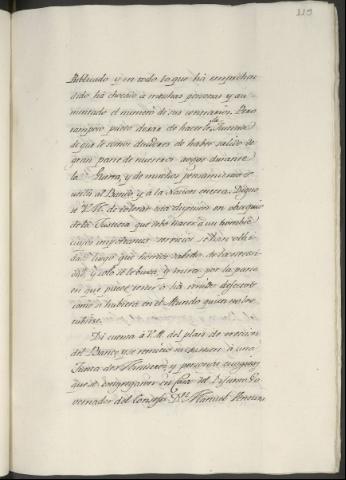 119
Publicado y en todo lo que ha emprehen
dido ha chocado à muchas personas y au
mentado el numero de sus contrarios. Pero
tampoco puedo dexar de hacerle la Justicia
de que le somos deudores de haber salido de
gran parte de nuestros ahogos durante
la Guerra, y de muchos pensamientos
utiles al Banco, y à la Nacion entera. Digne
se V.M. de tolerar esta digresion en obsequio
de la Justicia que debo hacer à un hombre
cuyos importantes servicios se han olvi
dado luego que hemos salido de la necesi
dad, y solo se le busca, y mira por la parte
en que puede tener ó ha tenido defectos
como si hubiera en el Mundo quien no los
tubiese.
Di cuenta à V.M. del plan de ereccion
del Banco, y se remitio su examen à una
Junta de Ministros, y personas
que se congregaron en Casa del Difunto Go
vernador del Consejo Dn. Manuel Ventura